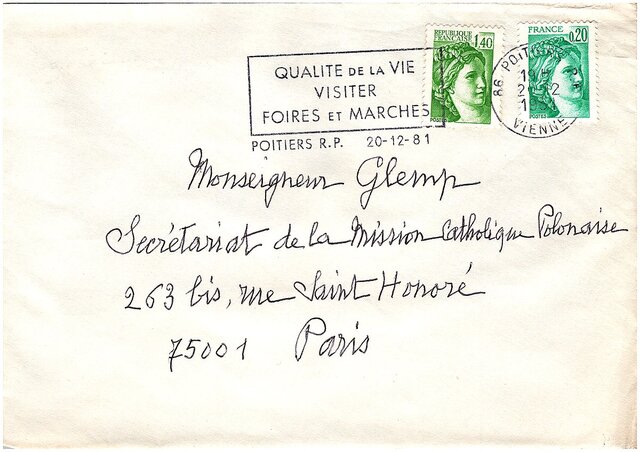 QUALITE DE LA VIE
VISITER
FOIRES ET MARCHES
POITIERS R.P. 20-12-81
REPUBLIQUE
FRANÇAISE 1,40
FRANCE 0,20
86 POITIERS
VIENNE
Monseigneur Glemp
Secrétariat de la Mission Catholique Polonaise
263 bis, rue Saint Honoré
75001 Paris